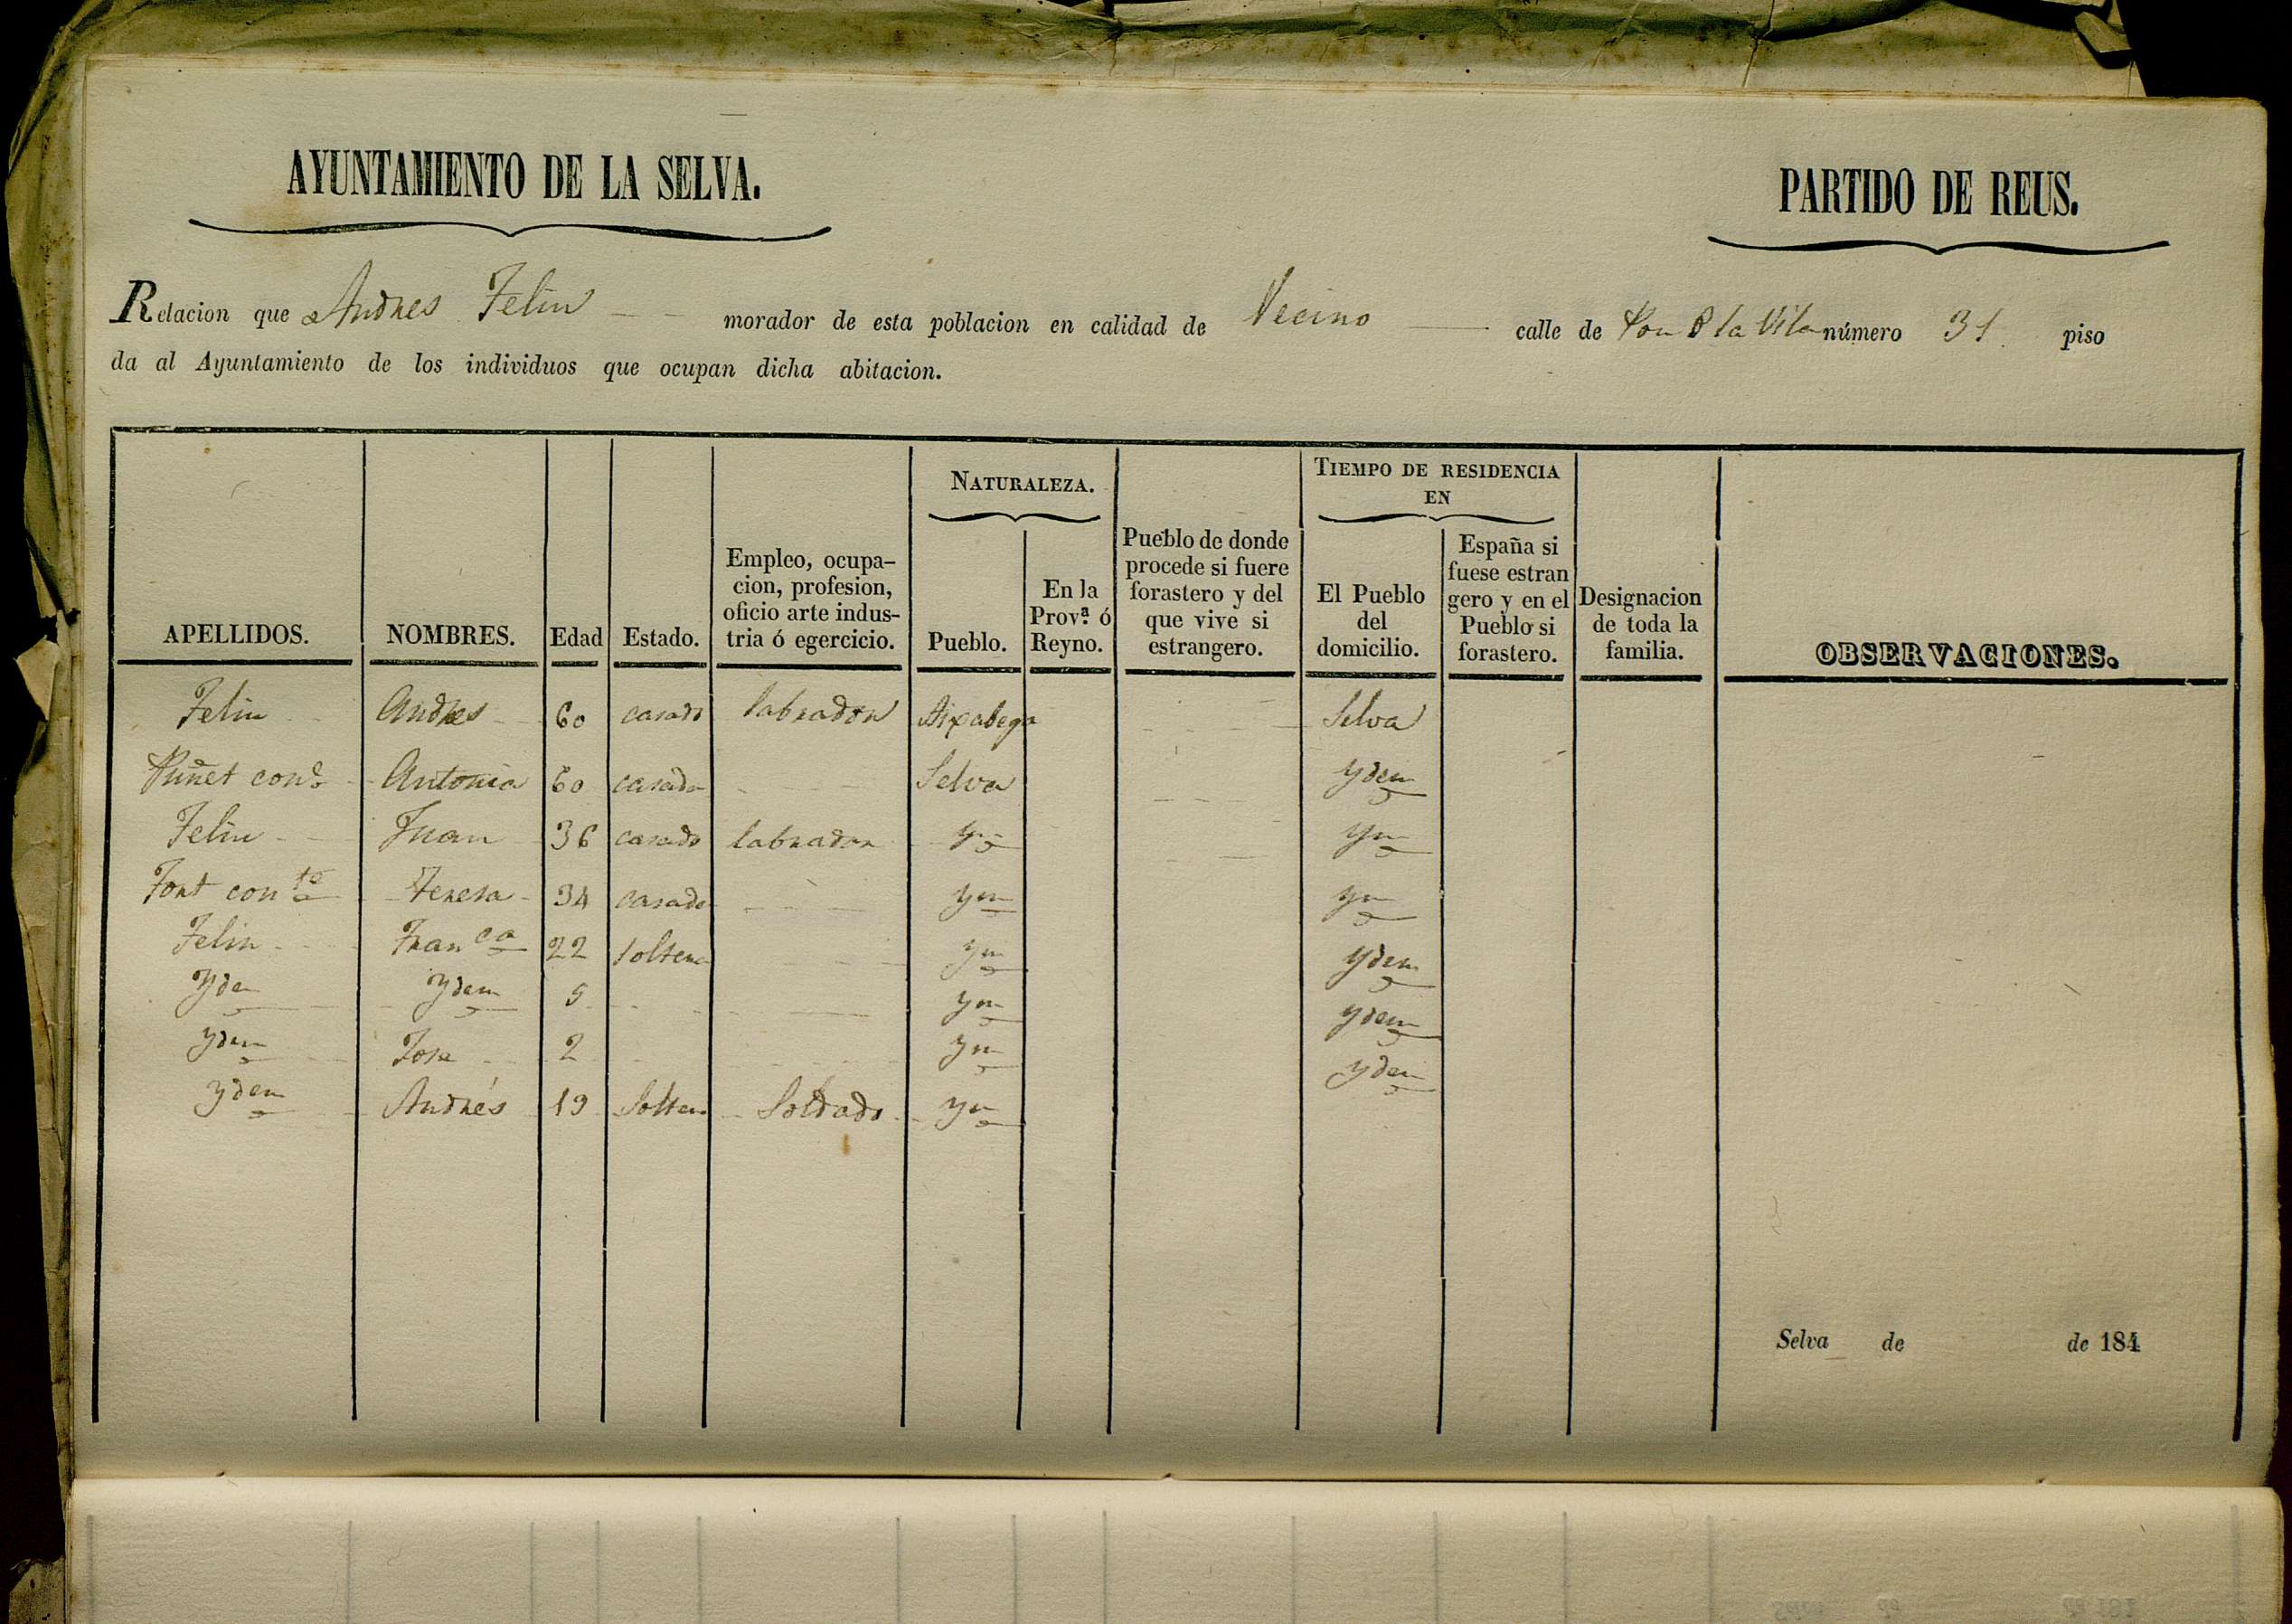 AYUNTAMIENTO DE LA SELVA.
PARTIDO DE REUS.
Relacion que Andres Feliu morador de esta poblacion en calidad de Vecino calle de la Vila número 31 piso
da al Ayuntamiento de los individuos que ocupan dicha abitacion.
NATURALEZA.
TIEMPO DE RESIDENCIA EN
APELLIDOS. NOMBRES. Edad Estado. Empleo, ocupa-cion, profesion, oficio arte indus-tria ó egercicio. Pueblo. En la Prov.ª ó Reyno. Pueblo de donde procede si fuere forastero y del que vive si estrangero. El Pueblo del domicilio. España si fuese estran gero y en el Pueblo si forastero. Designacion de toda la familia. OBSERVACIONES.
Feliu Andres 60 casado labrador Aixabega Selva
Puñet con.e Antonia 60 casada Selva Ydem
Feliu Juan 36 casado labrador Ym Ym
Font con.te Teresa 34 casada Ym Ym
Feliu Fran.ca 22 soltera Ym Ydem
Yden Ydem 5 Ym Ydem
Ydem Jose 2 Ym Ydem
Ydem Andrés 19 Solter Soldado Ym
Selva de de 184